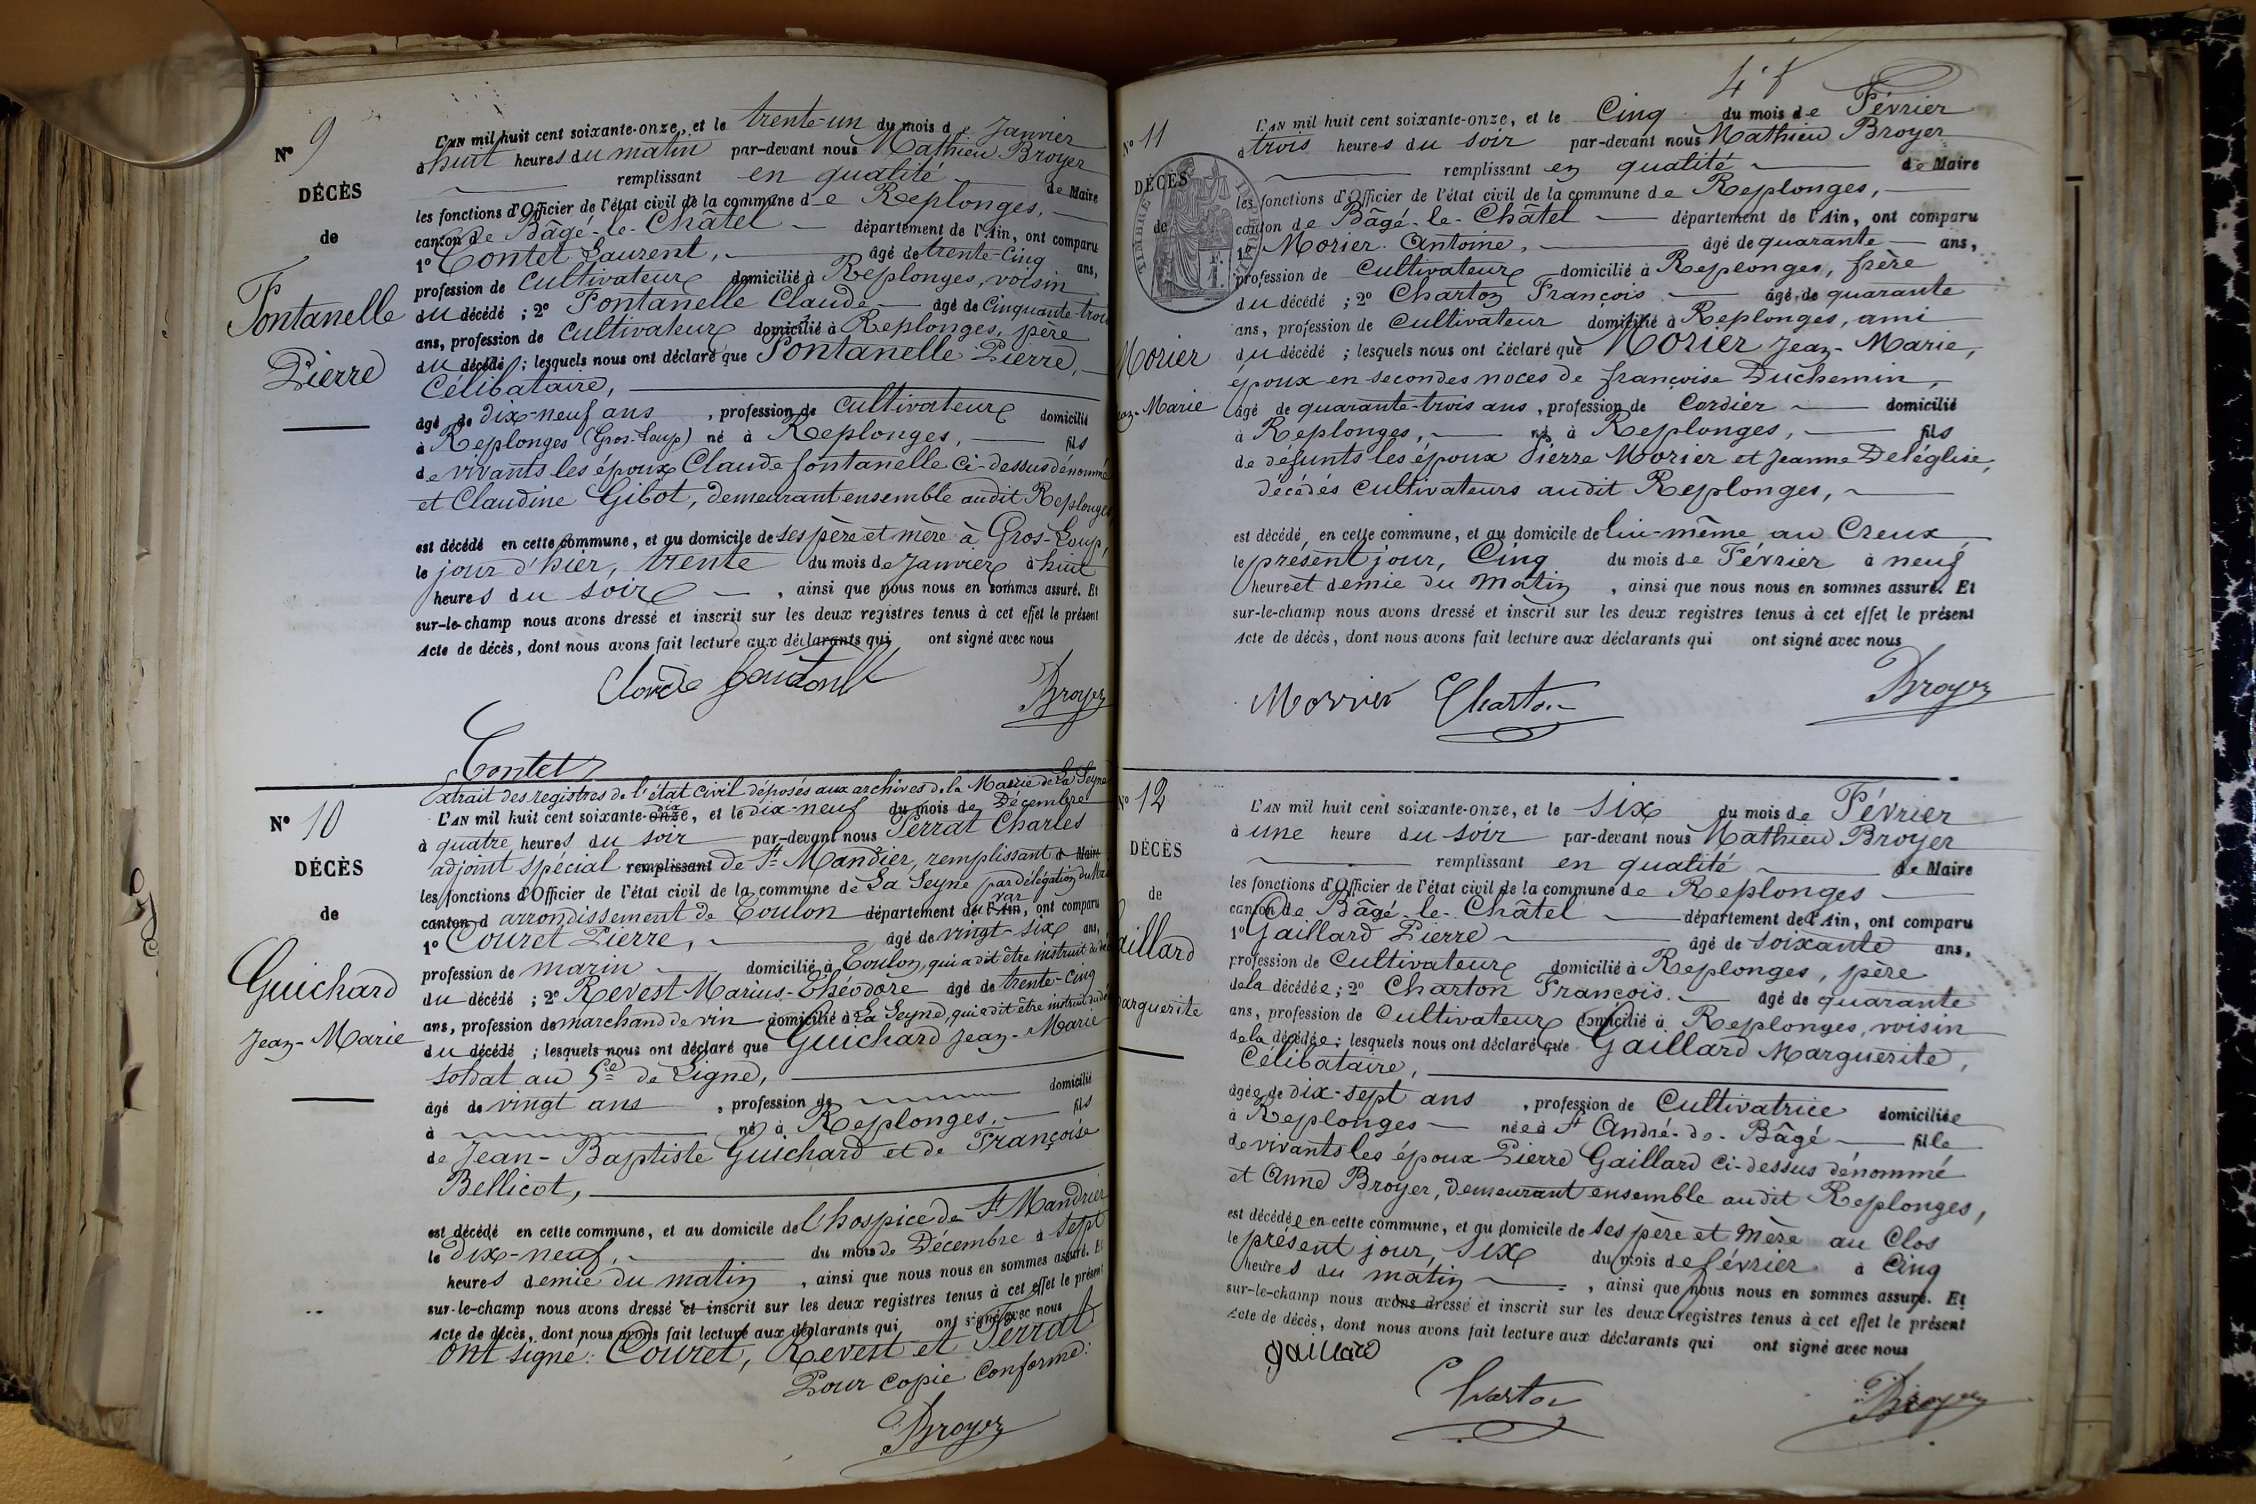 N° 9
DÉCÈS
de
Fontanelle
Pierre
L'AN mil huit cent soixante-onze, et le trente-un du mois de Janvier
à huit heures du matin par-devant nous Mathieu Broyer
remplissant en qualité de Maire
les fonctions d'Officier de l'état civil de la commune de Replonges,
canton de Bâgé-le-Châtel département de l'Ain, ont comparu
1° Contet Laurent, âgé de trente-cinq ans,
profession de cultivateur domicilié à Replonges, voisin
du décédé ; 2° Fontanelle Claude âgé de cinquante-trois
ans, profession de cultivateur domicilié à Replonges, père
du décédé ; lesquels nous ont déclaré que Fontanelle Pierre,
Célibataire,
âgé de dix-neuf ans , profession de cultivateur domicilié
à Replonges (Gros-Loup) né à Replonges, fils
de vivants les époux Claude fontanelle ci-dessus dénommé
et Claudine Gibot, demeurant ensemble audit Replonges
est décédé en cette commune, et au domicile de ses père et mère à Gros-Loup,
le jour d'hier, trente du mois de Janvier à huit
heures du soir , ainsi que nous nous en sommes assuré. Et
sur-le-champ nous avons dressé et inscrit sur les deux registres tenus à cet effet le présent
Acte de décès, dont nous avons fait lecture aux déclarants qui ont signé avec nous
Broyer
Contet
N° 10
DÉCÈS
de
Guichard
Jean-Marie
Extrait des registres de l'état civil déposés aux archives de la Mairie de La Seyne
L'AN mil huit cent soixante-onze dix, et le dix-neuf du mois de Décembre
à quatre heures du soir par-devant nous Perrat Charles
adjoint spécial remplissant de St Mandier, remplissant d Maire
les fonctions d'Officier de l'état civil de la commune de La Seyne par délégation du Maire
canton d arrondissement de Toulon département de l'Ain var, ont comparu
1° Couret Pierre, âgé de vingt-six ans,
profession de marin domicilié à Toulon, qui a dit être instruit du décès
du décédé ; 2° Revest Marius-Théodore âgé de trente-cinq
ans, profession de marchand de vin domicilié à La Seyne, qui a dit être instruit du décès
du décédé ; lesquels nous ont déclaré que Guichard Jean-Marie
soldat au 5e de Ligne,
âgé de vingt ans , profession de domicilié
à né à Replonges, fils
de Jean-Baptiste Guichard et de Françoise
Bellicot,
est décédé en cette commune, et au domicile de l'hospice de St Mandrier
le dix-neuf, du mois de Décembre à sept
heures demie du matin , ainsi que nous nous en sommes assuré. Et
sur-le-champ nous avons dressé et inscrit sur les deux registres tenus à cet effet le présent
Acte de décès, dont nous avons fait lecture aux déclarants qui ont signé avec nous
ont signé : Couret, Revest et Perrat
Pour copie Conforme :
Broyer
N° 11
DÉCÈS
de
Morier
Jean-Marie
TIMBRE
L'AN mil huit cent soixante-onze, et le Cinq du mois de Février
à trois heures du soir par-devant nous Mathieu Broyer
remplissant en qualité de Maire
les fonctions d'Officier de l'état civil de la commune de Replonges,
canton de Bâgé-le-Châtel département de l'Ain, ont comparu
1° Morier Antoine, âgé de quarante ans,
profession de cultivateur domicilié à Replonges, frère
du décédé ; 2° Charton François âgé de quarante
ans, profession de cultivateur domicilié à Replonges, ami
du décédé ; lesquels nous ont déclaré que Morier Jean-Marie,
époux en secondes noces de françoise Duchemin,
âgé de quarante-trois ans, profession de Cordier domicilié
à Replonges, né à Replonges, fils
de défunts les époux Pierre Morier et Jeanne Deléglise,
décédés cultivateurs audit Replonges,
est décédé en cette commune, et au domicile de lui-même au Creux
le présent jour, Cinq du mois de Février à neuf
heure et demie du matin , ainsi que nous nous en sommes assuré. Et
sur-le-champ nous avons dressé et inscrit sur les deux registres tenus à cet effet le présent
Acte de décès, dont nous avons fait lecture aux déclarants qui ont signé avec nous
Morrier Charton Broyer
N° 12
DÉCÈS
de
Gaillard
Marguerite
L'AN mil huit cent soixante-onze, et le six du mois de Février
à une heure du soir par-devant nous Mathieu Broyer
remplissant en qualité de Maire
les fonctions d'Officier de l'état civil de la commune de Replonges
canton de Bâgé-le-Châtel département de l'Ain, ont comparu
1° Gaillard Pierre âgé de soixante ans,
profession de Cultivateur domicilié à Replonges, père
de la décédée ; 2° Charton François. âgé de quarante
ans, profession de Cultivateur domicilié à Replonges, voisin
de la décédée ; lesquels nous ont déclaré que Gaillard Marguerite,
Célibataire,
âgée de dix-sept ans , profession de Cultivatrice domiciliée
à Replonges née à St André-de-Bâgé fille
de vivants les époux Pierre Gaillard ci-dessus dénommé
et Anne Broyer, demeurant ensemble audit Replonges,
est décédée en cette commune, et au domicile de ses père et mère au Clos
le présent jour, six du mois de février à Cinq
heures du matin , ainsi que nous nous en sommes assuré. Et
sur-le-champ nous avons dressé et inscrit sur les deux registres tenus à cet effet le présent
Acte de décès, dont nous avons fait lecture aux déclarants qui ont signé avec nous
gaillard
Charton
Broyer